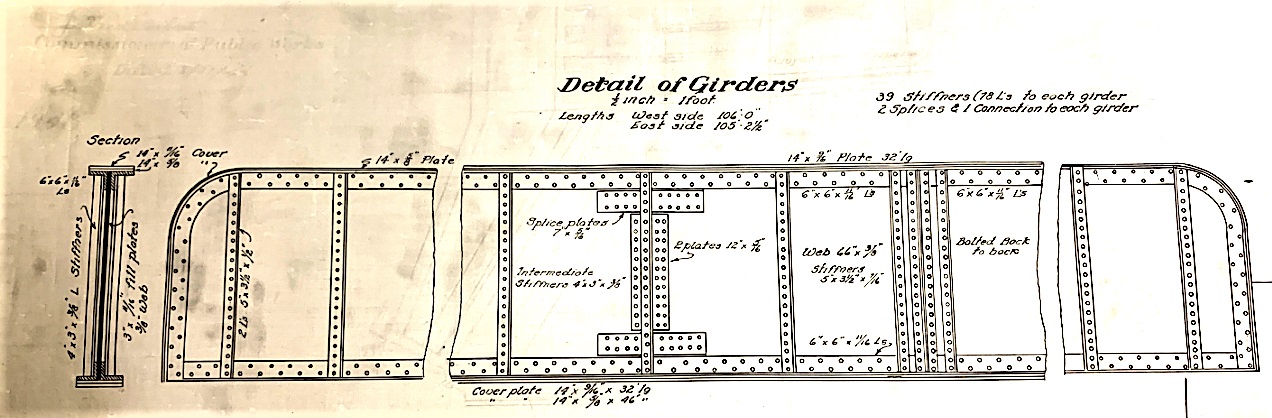 Commissioner of Public Works
Detail of Girders
½ inch = 1 foot
Lengths West side 106'·0"
East side 105'·2½"
39 Stiffners (78 L's to each girder
2 Splices & 1 Connection to each girder
Section
14" x 9/16" Cover
14" x 5/8 "
6"x6"x11/16"
Ls
4" x 3" x 3/8" L Stiffners
3" x 11/16" fill plates
3/8" Web
14" x 5/8" Plate
2 Ls 5" x 3½" x ½"
14" x 9/16" Plate 32' lg
Splice plates
Intermediate
Stiffners 4" x 3" x 3/8"
2 plates 12" x
6" x 6" x 11/16" Ls
Web 66" x 3/8"
Stiffners
5" x 3½" x 7/16"
6" x 6" x 11/16 Ls
6" x 6" x 11/16 L's
Bolted Back
to back
Cover plate 14" x 9/16" x 32' lg
" " 14" x 5/8 x 46' "